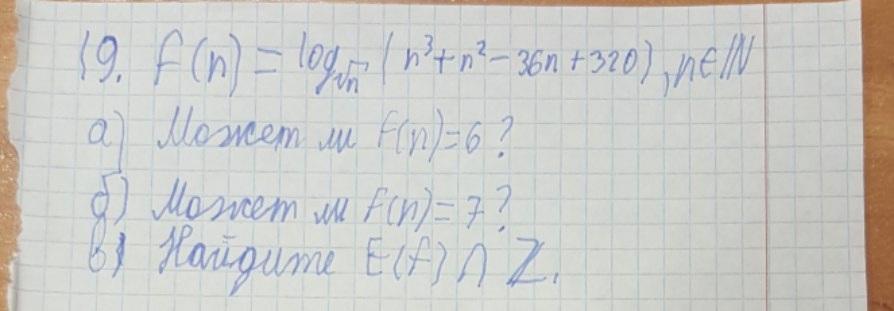 19. f(n) = log√n (n³+n²-36n+320), n∈ℕ
а) Может ли f(n)=6?
б) Может ли f(n)=7?
в) Найдите E(f) ∩ ℤ.